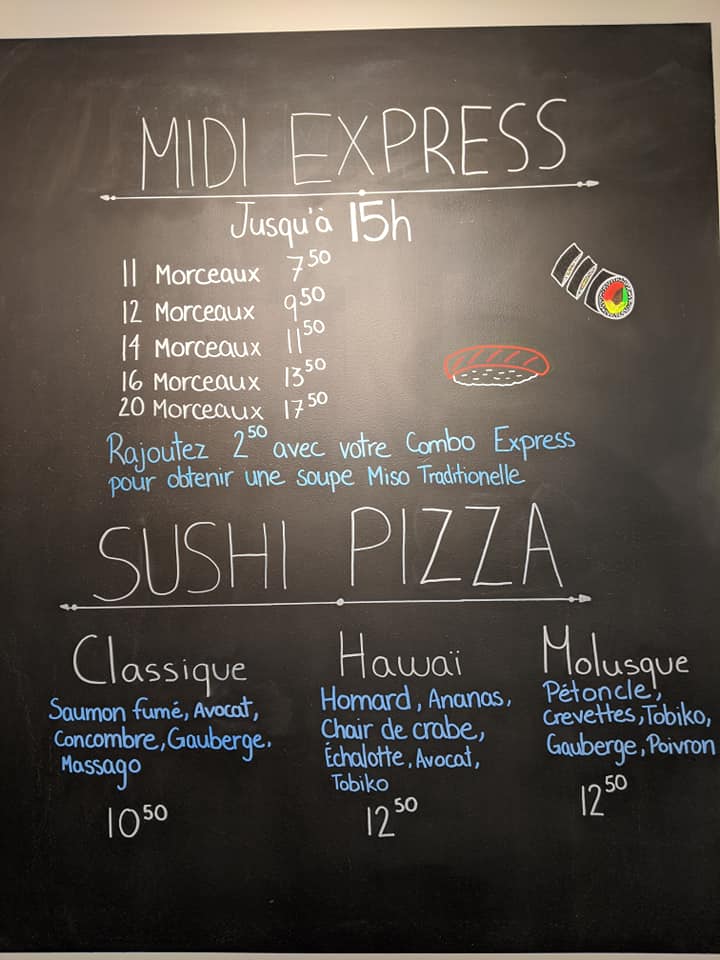 MIDI EXPRESS
Jusqu'à 15h
11 Morceaux 7 50
12 Morceaux 9 50
14 Morceaux 11 50
16 Morceaux 13 50
20 Morceaux 17 50
Rajoutez 2 50 avec votre Combo Express
pour obtenir une soupe Miso Traditionelle
SUSHI PIZZA
Classique
Saumon fumé, Avocat,
Concombre, Gauberge.
Massago
10 50
Hawaï
Homard, Ananas,
Chair de crabe,
Échalotte, Avocat,
Tobiko
12 50
Molusque
Pétoncle,
Crevettes, Tobiko,
Gauberge, Poivron
12 50